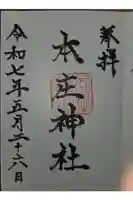 奉拝
本庄神社
令和七年五月二十六日